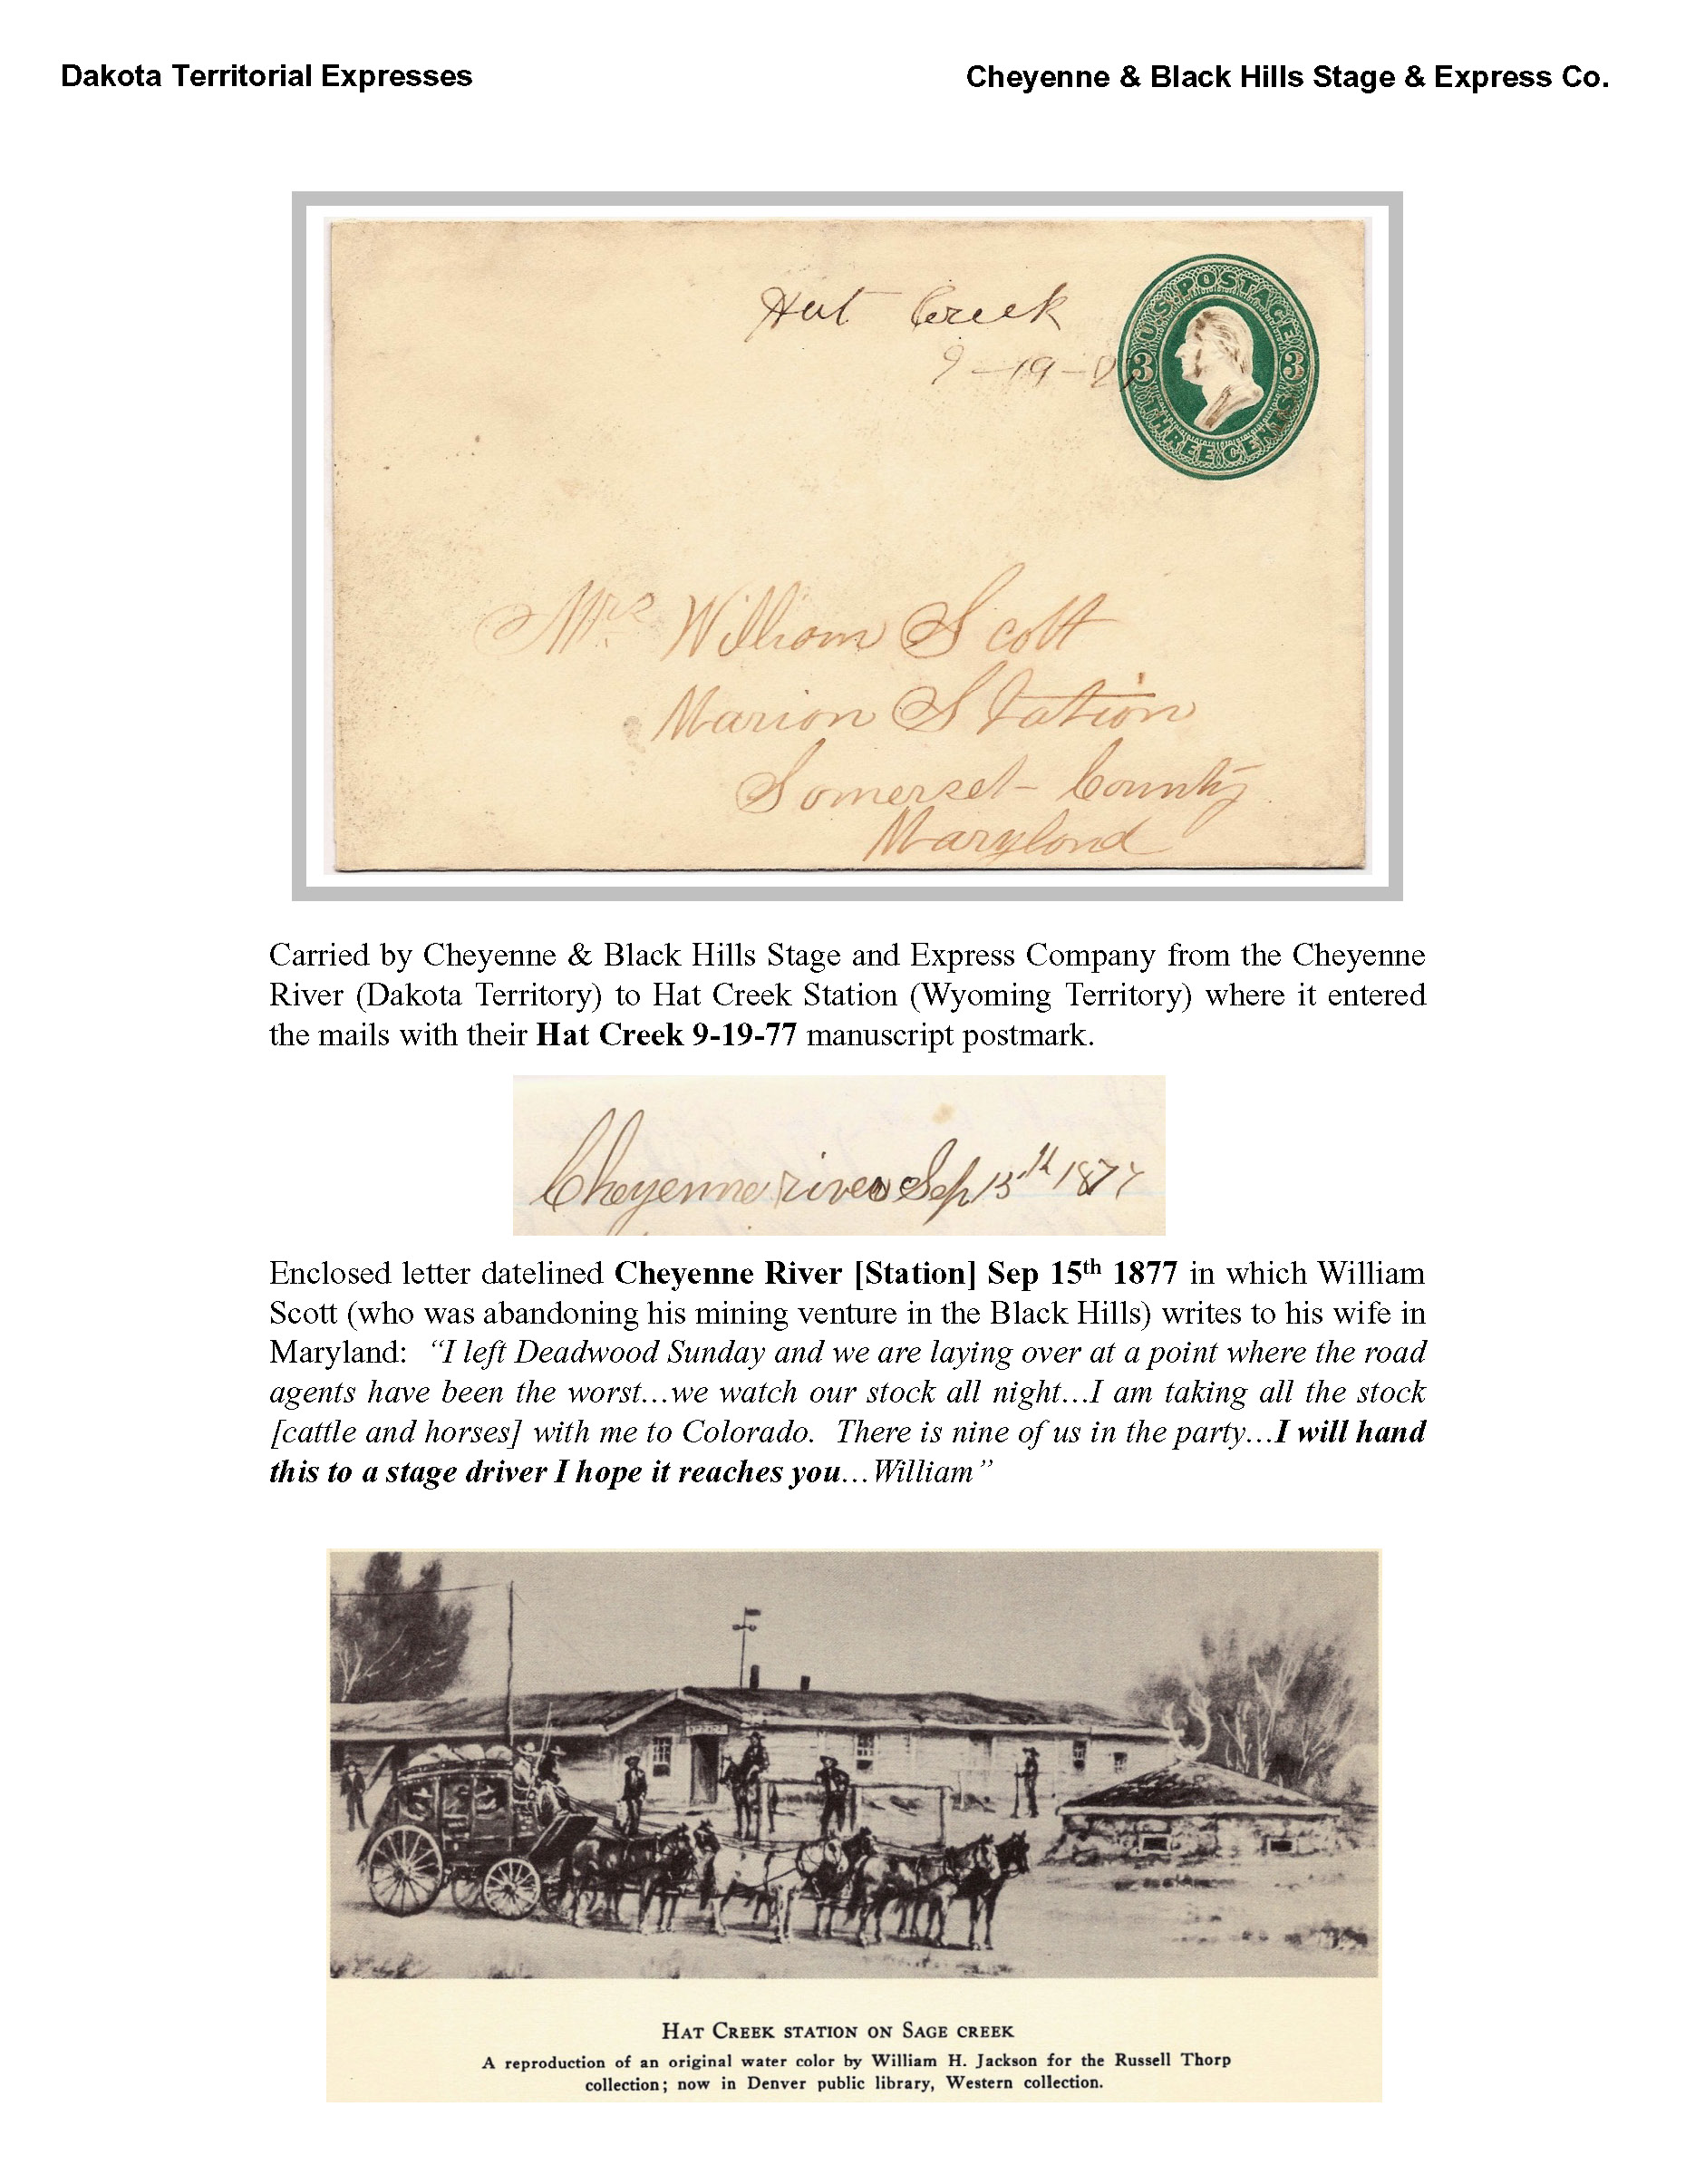 Dakota Territorial Expresses
Cheyenne & Black Hills Stage & Express Co.
Hat Creek
9-19-
U.S. POSTAGE
3 3
THREE CENTS
Mrs. William Scott
Marion Station
Somerset County
Maryland
Carried by Cheyenne & Black Hills Stage and Express Company from the Cheyenne
River (Dakota Territory) to Hat Creek Station (Wyoming Territory) where it entered
the mails with their Hat Creek 9-19-77 manuscript postmark.
Cheyenne river Sep 15th 1877
Enclosed letter datelined Cheyenne River [Station] Sep 15th 1877 in which William
Scott (who was abandoning his mining venture in the Black Hills) writes to his wife in
Maryland: “I left Deadwood Sunday and we are laying over at a point where the road
agents have been the worst…we watch our stock all night…I am taking all the stock
[cattle and horses] with me to Colorado. There is nine of us in the party…I will hand
this to a stage driver I hope it reaches you…William”
HAT CREEK STATION ON SAGE CREEK
A reproduction of an original water color by William H. Jackson for the Russell Thorp
collection; now in Denver public library, Western collection.